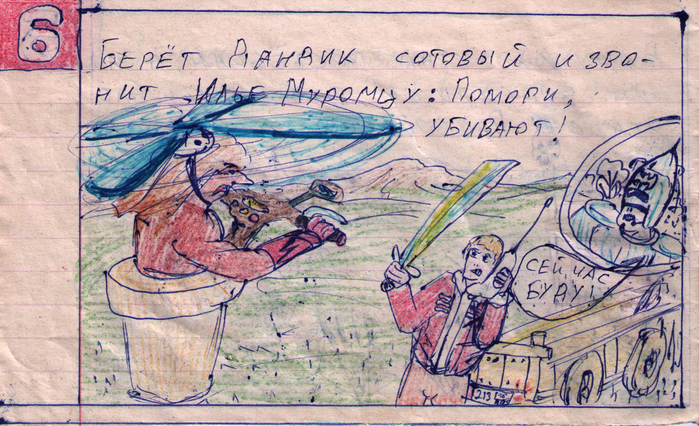 6
БЕРЁТ ДАНДИК СОТОВЫЙ И ЗВО-
НИТ ИЛЬЕ МУРОМЦУ: ПОМОГИ,
УБИВАЮТ!
СЕЙЧАС
БУДУ!
213